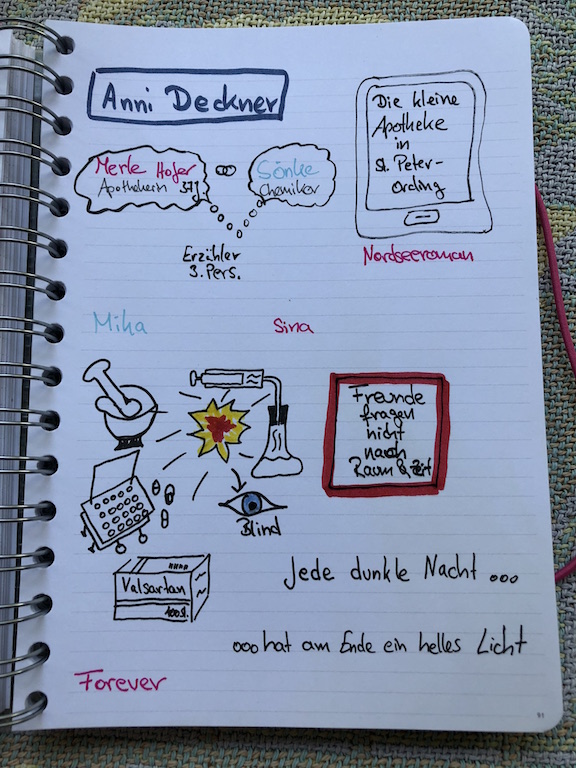 Anni Deckner
Die kleine
Apotheke
in
St. Peter-
Ording
Merle Hofer
Apothekerin 37J
Sönke
Chemiker
Erzähler
3. Pers.
Nordseeroman
Mika
Sina
Freunde
fragen
nicht
nach
Raum & Zeit
Blind
Valsartan
100St.
Jede dunkle Nacht ...
...hat am Ende ein helles Licht
Forever